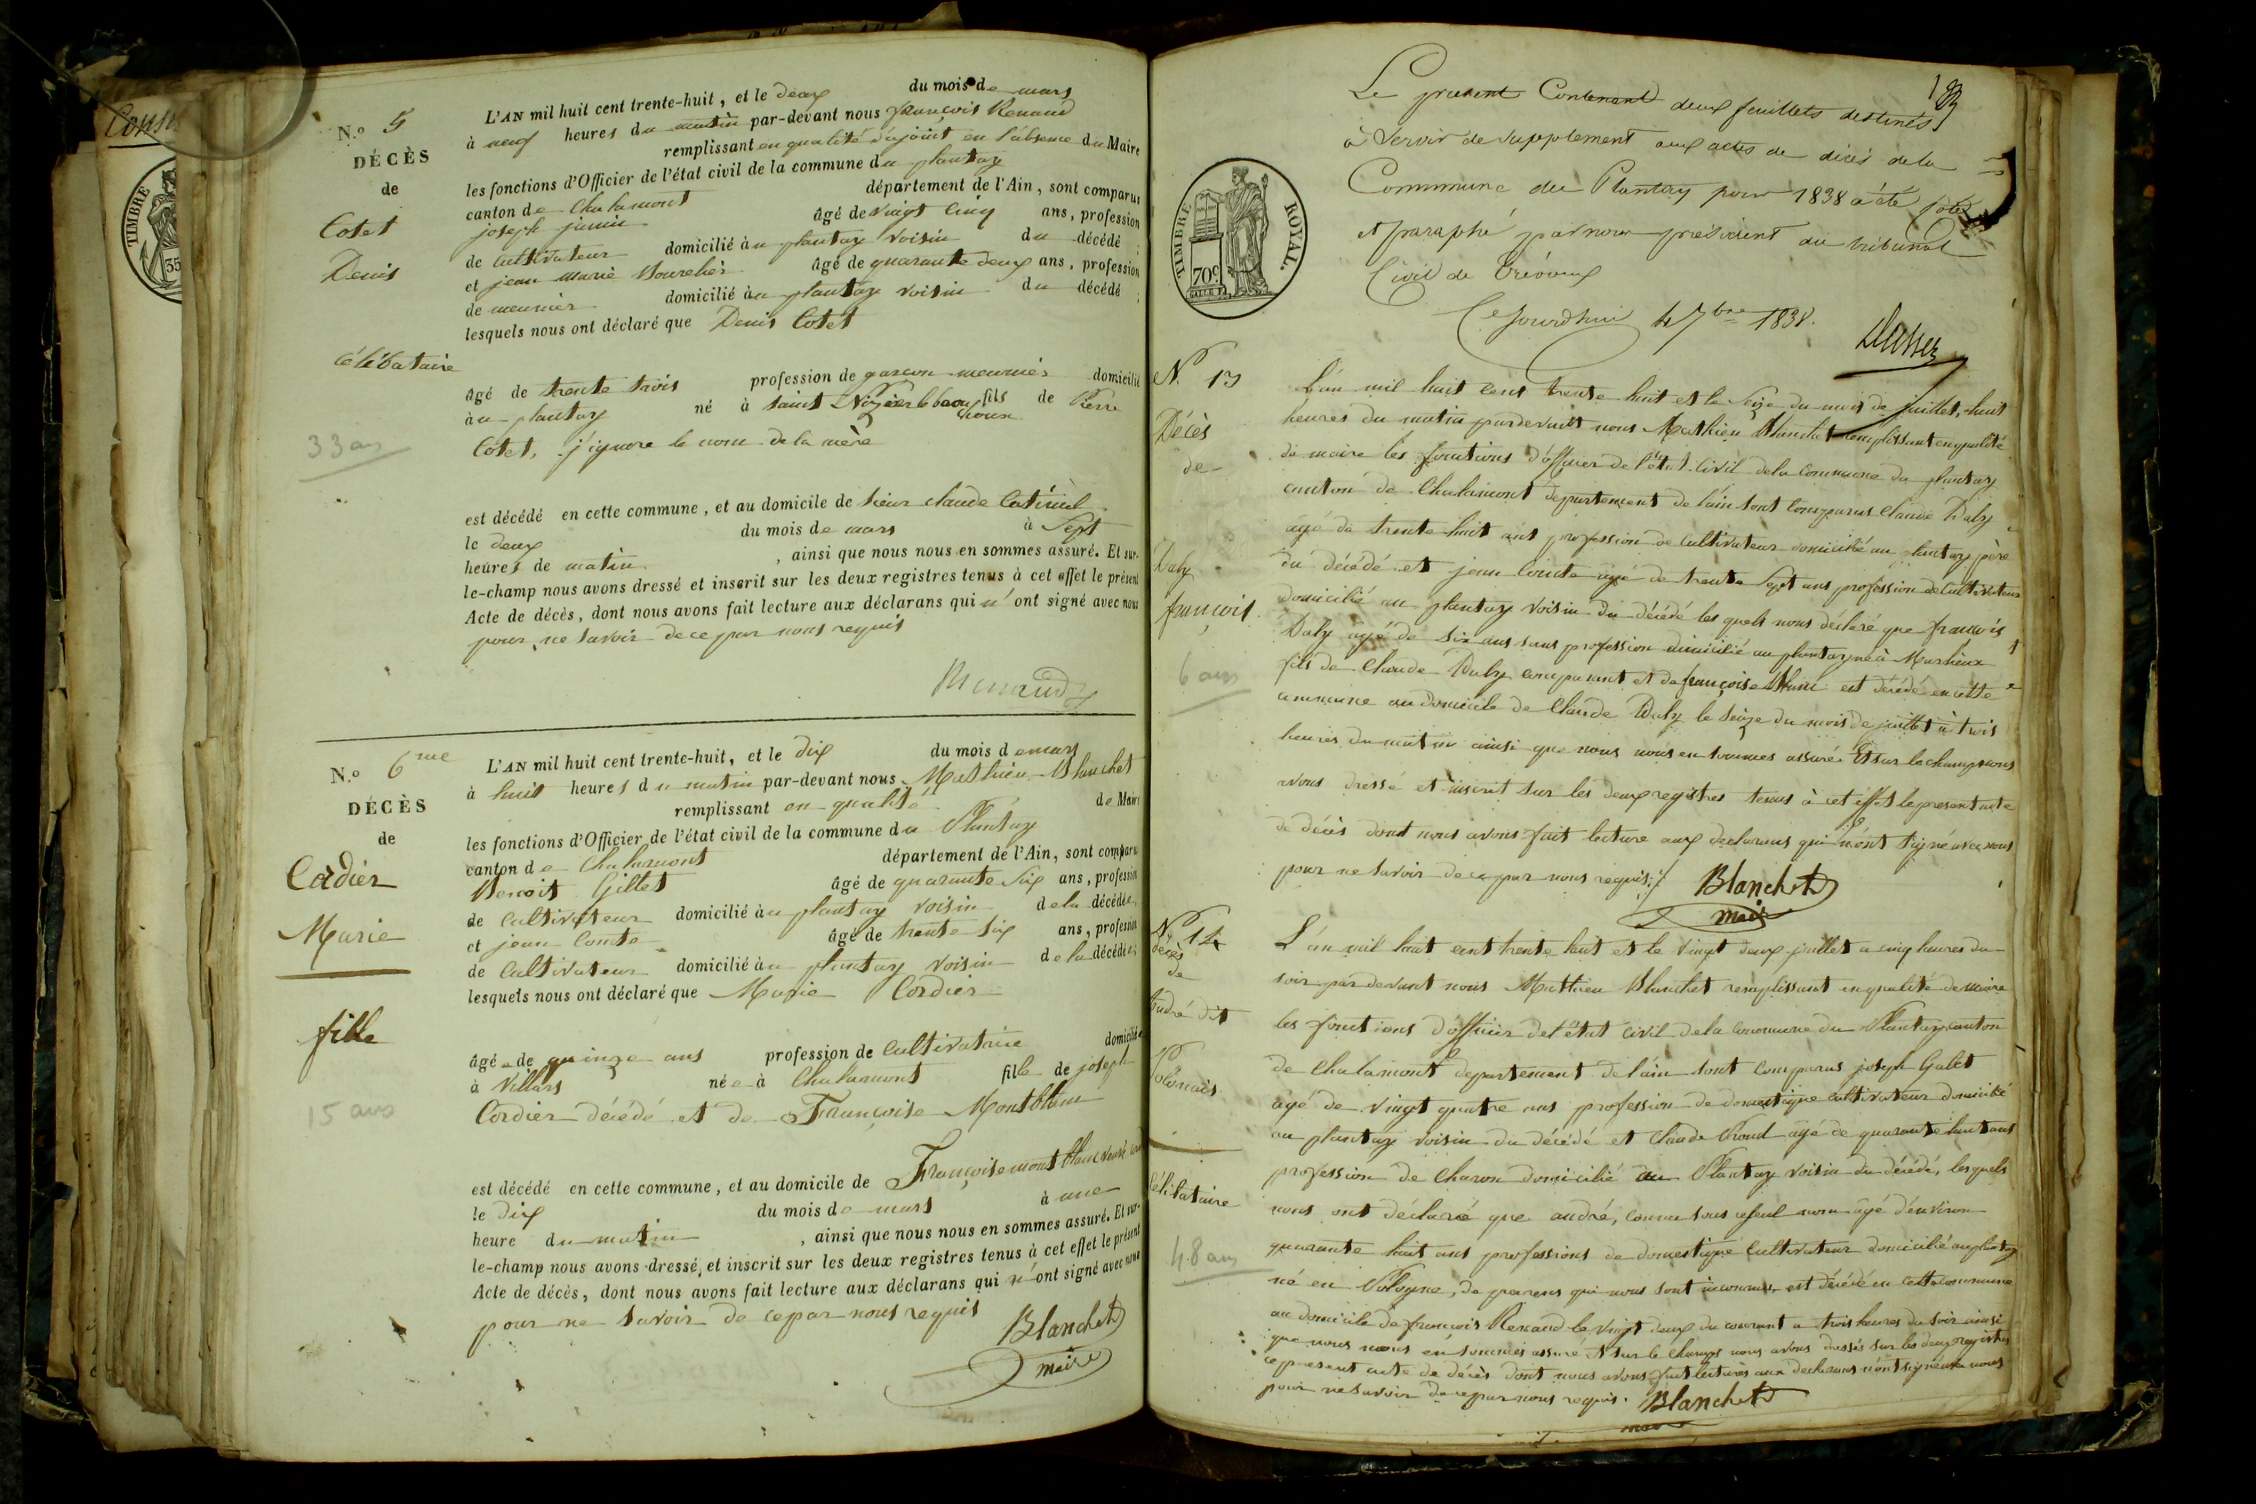 Consu
TIMBRE
35
N.o 5
DÉCÈS
de
Cotet
Denis
célébataire
33 ans
L'AN mil huit cent trente-huit, et le deux du mois de mars
à neuf heures du matin par-devant nous françois Renaud
remplissant en qualité d'ajoint en l'absence du Maire
les fonctions d'Officier de l'état civil de la commune du plantay
canton de Chalamont département de l'Ain, sont comparus
joseph âgé de vingt cinq ans, profession
de cultivateur domicilié au plantay voisin du décédé ;
et jean marie âgé de quarante deux ans, profession
de meunier domicilié au plantay voisin du décédé ;
lesquels nous ont déclaré que Denis Cotet
âgé de trente trois profession de garcon meunier domicilié
au plantay né à saint Nizier fils de Pierre
Cotet, j'ignore le nom de la mère
est décédé en cette commune, et au domicile de sieur claude
le deux du mois de mars à Sept
heures de matin , ainsi que nous nous en sommes assuré. Et sur-
le-champ nous avons dressé et inscrit sur les deux registres tenus à cet effet le présent
Acte de décès, dont nous avons fait lecture aux déclarans qui n'ont signé avec nous
pour ne savoir de ce par nous requis
Renaud
N.o 6me
DÉCÈS
de
Cordier
Marie
fille
15 ans
L'AN mil huit cent trente-huit, et le dix du mois de mars
à huit heures du matin par-devant nous Mathieu Blanchet
remplissant en qualité de Maire
les fonctions d'Officier de l'état civil de la commune du Plantay
canton de Chalamont département de l'Ain, sont comparu
Benoit Gillet âgé de quarante six ans, profession
de cultivateur domicilié au plantay voisin de la décédée,
et jean Comte âgé de trente six ans, profession
de cultivateur domicilié au plantay voisin de la décédée;
lesquels nous ont déclaré que Marie Cordier
âgée de quinze ans profession de cultivatrice domiciliée
à Villars née à Chalamont fille de joseph
Cordier décédé et de Françoise Montblanc
est décédé en cette commune, et au domicile de Françoise montblanc veuve
le dix du mois de mars à une
heure du matin , ainsi que nous nous en sommes assuré. Et sur-
le-champ nous avons dressé et inscrit sur les deux registres tenus à cet effet le présent
Acte de décès, dont nous avons fait lecture aux déclarans qui n'ont signé avec nous
pour ne savoir de ce par nous requis
Blanchet
maire
Le présent Contenant deux feuillets destinés
à Servir de supplement aux actes de décès de la
Commune du Plantay pour 1838 a été coté
et paraphé par nous président du tribunal
Civil de Trévoux
Ce jourdhui 4 7bre 1838.
TIMBRE ROYAL.
70c
N.o 13
Décès
de
Daly
françois
6 ans
L'an mil huit cent trente huit et le Seize du mois de juillet, huit
heures du matin pardevant nous Mathieu Blanchet remplissant en qualité
de maire les fonctions d'officier de l'état Civil de la commune du plantay
canton de Chalamont departement de l'ain sont comparus Claude Daly
âgé de trente huit ans profession de cultivateur domicilié au plantay père
du décédé et jean Comte âgé de trente Sept ans profession de Cultivateur
domicilié au plantay voisin du décédé les quels nous déclaré que françois
Daly âgé de six ans sans profession domicilié au plantay né à Marlieux
fils de Claude Daly comparant et de françoise est décédé en cette
commune au domicile de Claude Daly le Seize du mois de juillet à trois
heures du matin ainsi que nous nous en sommes assuré. Et sur le champ nous
avons dressé et inscrit sur les deux registres tenus à cet effet le present acte
de décès dont nous avons fait lecture aux declarans qui n'ont signé avec nous
pour ne savoir de ce par nous requis.
Blanchet
maire
N.o 14
décès
de
André dit
Polonais
célibataire
48 ans
L'an mil huit cent trente huit et le vingt deux juillet a cinq heures du
soir par devant nous Mathieu Blanchet remplissant en qualité de maire
les fonctions d'officier de l'état civil de la commune du Plantay canton
de Chalamont departement de l'ain sont comparus joseph Galet
agé de vingt quatre ans profession de domestique cultivateur domicilié
au plantay voisin du décédé et Claude âgé de quarante huit ans
profession de Charon domicilié au Plantay voisin du décédé, les quels
nous ont déclaré que andré, connu sous ce seul nom agé d'environ
quarante huit ans professions de domestique cultivateur domicilié au plantay
né en Pologne, de parens qui nous sont inconnus, est décédé en cette commune
au domicile de françois Renaud le vingt deux du courant a trois heures du soir ainsi
que nous nous en sommes assuré et sur le champs nous avons dressés sur les deux registres
ce present acte de décès dont nous avons fait lectures aux declarans n'ont signé avec nous
pour ne savoir de ce par nous requis. Blanchet
maire